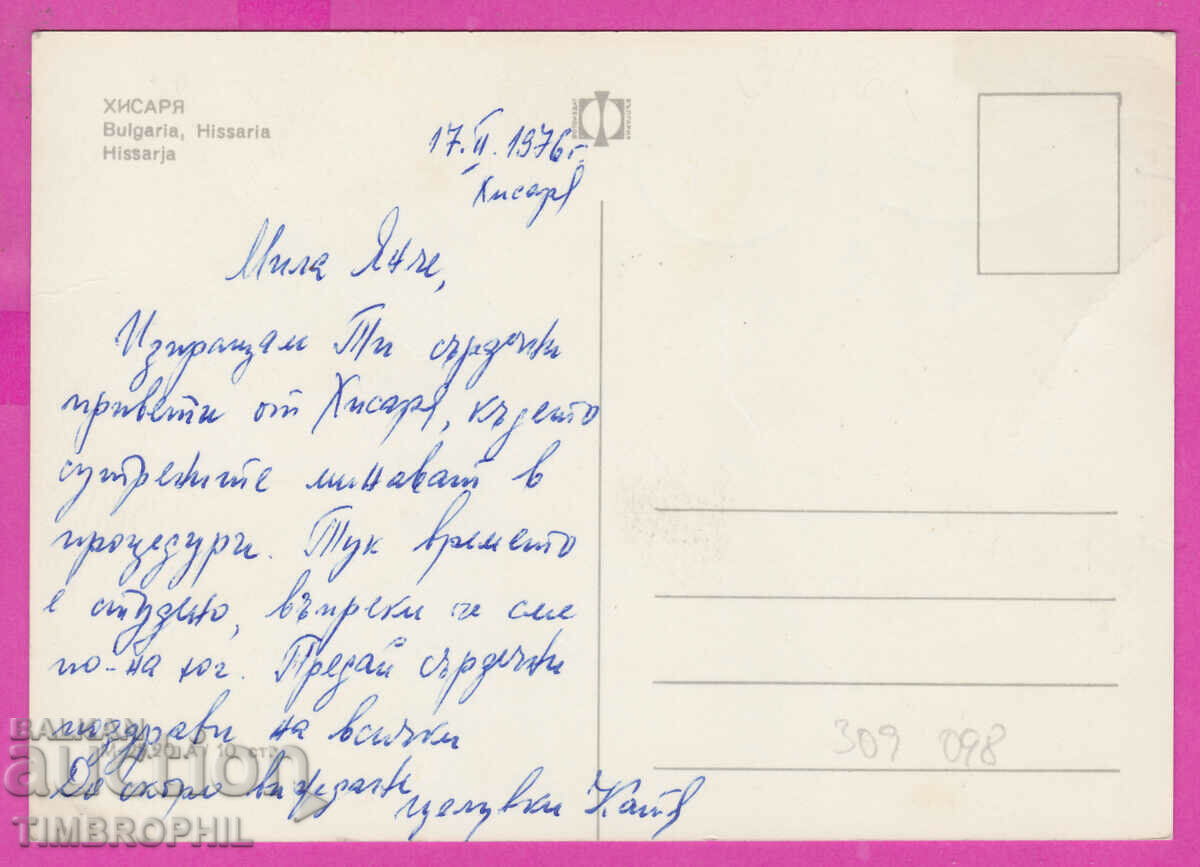 ХИСАРЯ
Bulgaria, Hissaria
Hissarja
17.II.1976г.
Хисаря
Мила Янче,
Изпращам Ти сърдечни
привети от Хисаря, където
сутрените минават в
процедури. Тук времето
е студено, въпреки че сме
по-на юг. Предай сърдечни
поздрави на всички
До скоро виждане
целувки Катя
10 ст.
309 098
BALKAN
auction
TIMBROPHIL